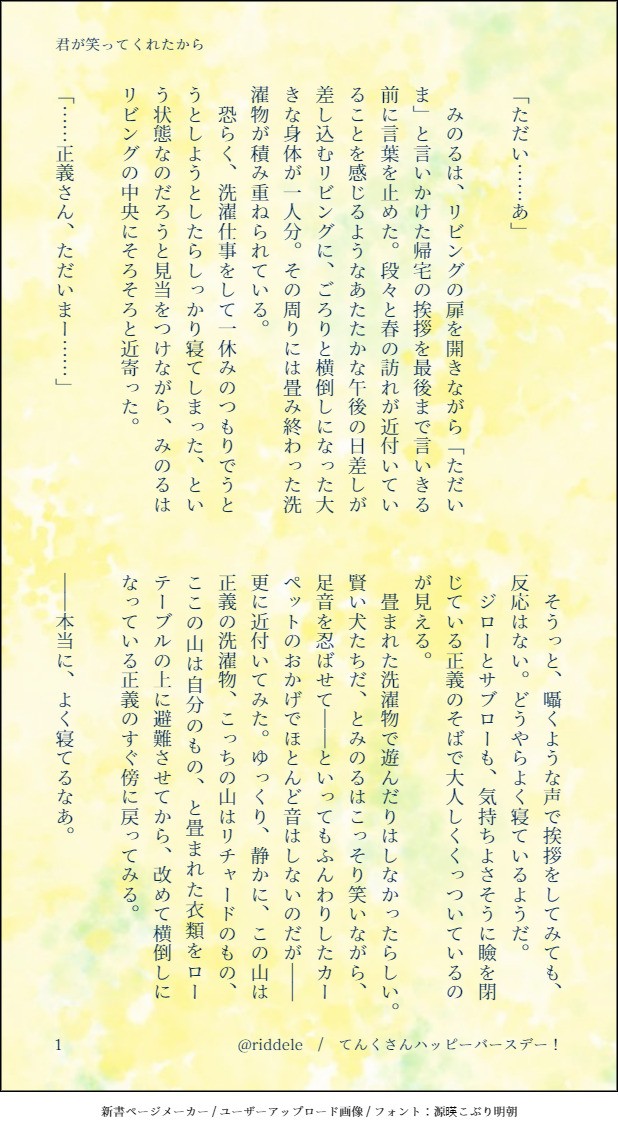 君が笑ってくれたから
「ただい……あ」
　みのるは、リビングの扉を開きながら「ただい
ま」と言いかけた帰宅の挨拶を最後まで言いきる
前に言葉を止めた。段々と春の訪れが近付いてい
ることを感じるようなあたたかな午後の日差しが
差し込むリビングに、ごろりと横倒しになった大
きな身体が一人分。その周りには畳み終わった洗
濯物が積み重ねられている。
　恐らく、洗濯仕事をして一休みのつもりでうと
うとしようとしたらしっかり寝てしまった、とい
う状態なのだろうと見当をつけながら、みのるは
リビングの中央にそろそろと近寄った。
「……正義さん、ただいまー……」
　そうっと、囁くような声で挨拶をしてみても、
反応はない。どうやらよく寝ているようだ。
　ジローとサブローも、気持ちよさそうに瞼を閉
じている正義のそばで大人しくくっついているの
が見える。
　畳まれた洗濯物で遊んだりはしなかったらしい。
賢い犬たちだ、とみのるはこっそり笑いながら、
足音を忍ばせて――といってもふんわりしたカー
ペットのおかげでほとんど音はしないのだが――
更に近付いてみた。ゆっくり、静かに、この山は
正義の洗濯物、こっちの山はリチャードのもの、
ここの山は自分のもの、と畳まれた衣類をロー
テーブルの上に避難させてから、改めて横倒しに
なっている正義のすぐ傍に戻ってみる。
――本当に、よく寝てるなあ。
1
@riddele　/　てんくさんハッピーバースデー！
新書ページメーカー / ユーザーアップロード画像 / フォント：源暎こぶり明朝